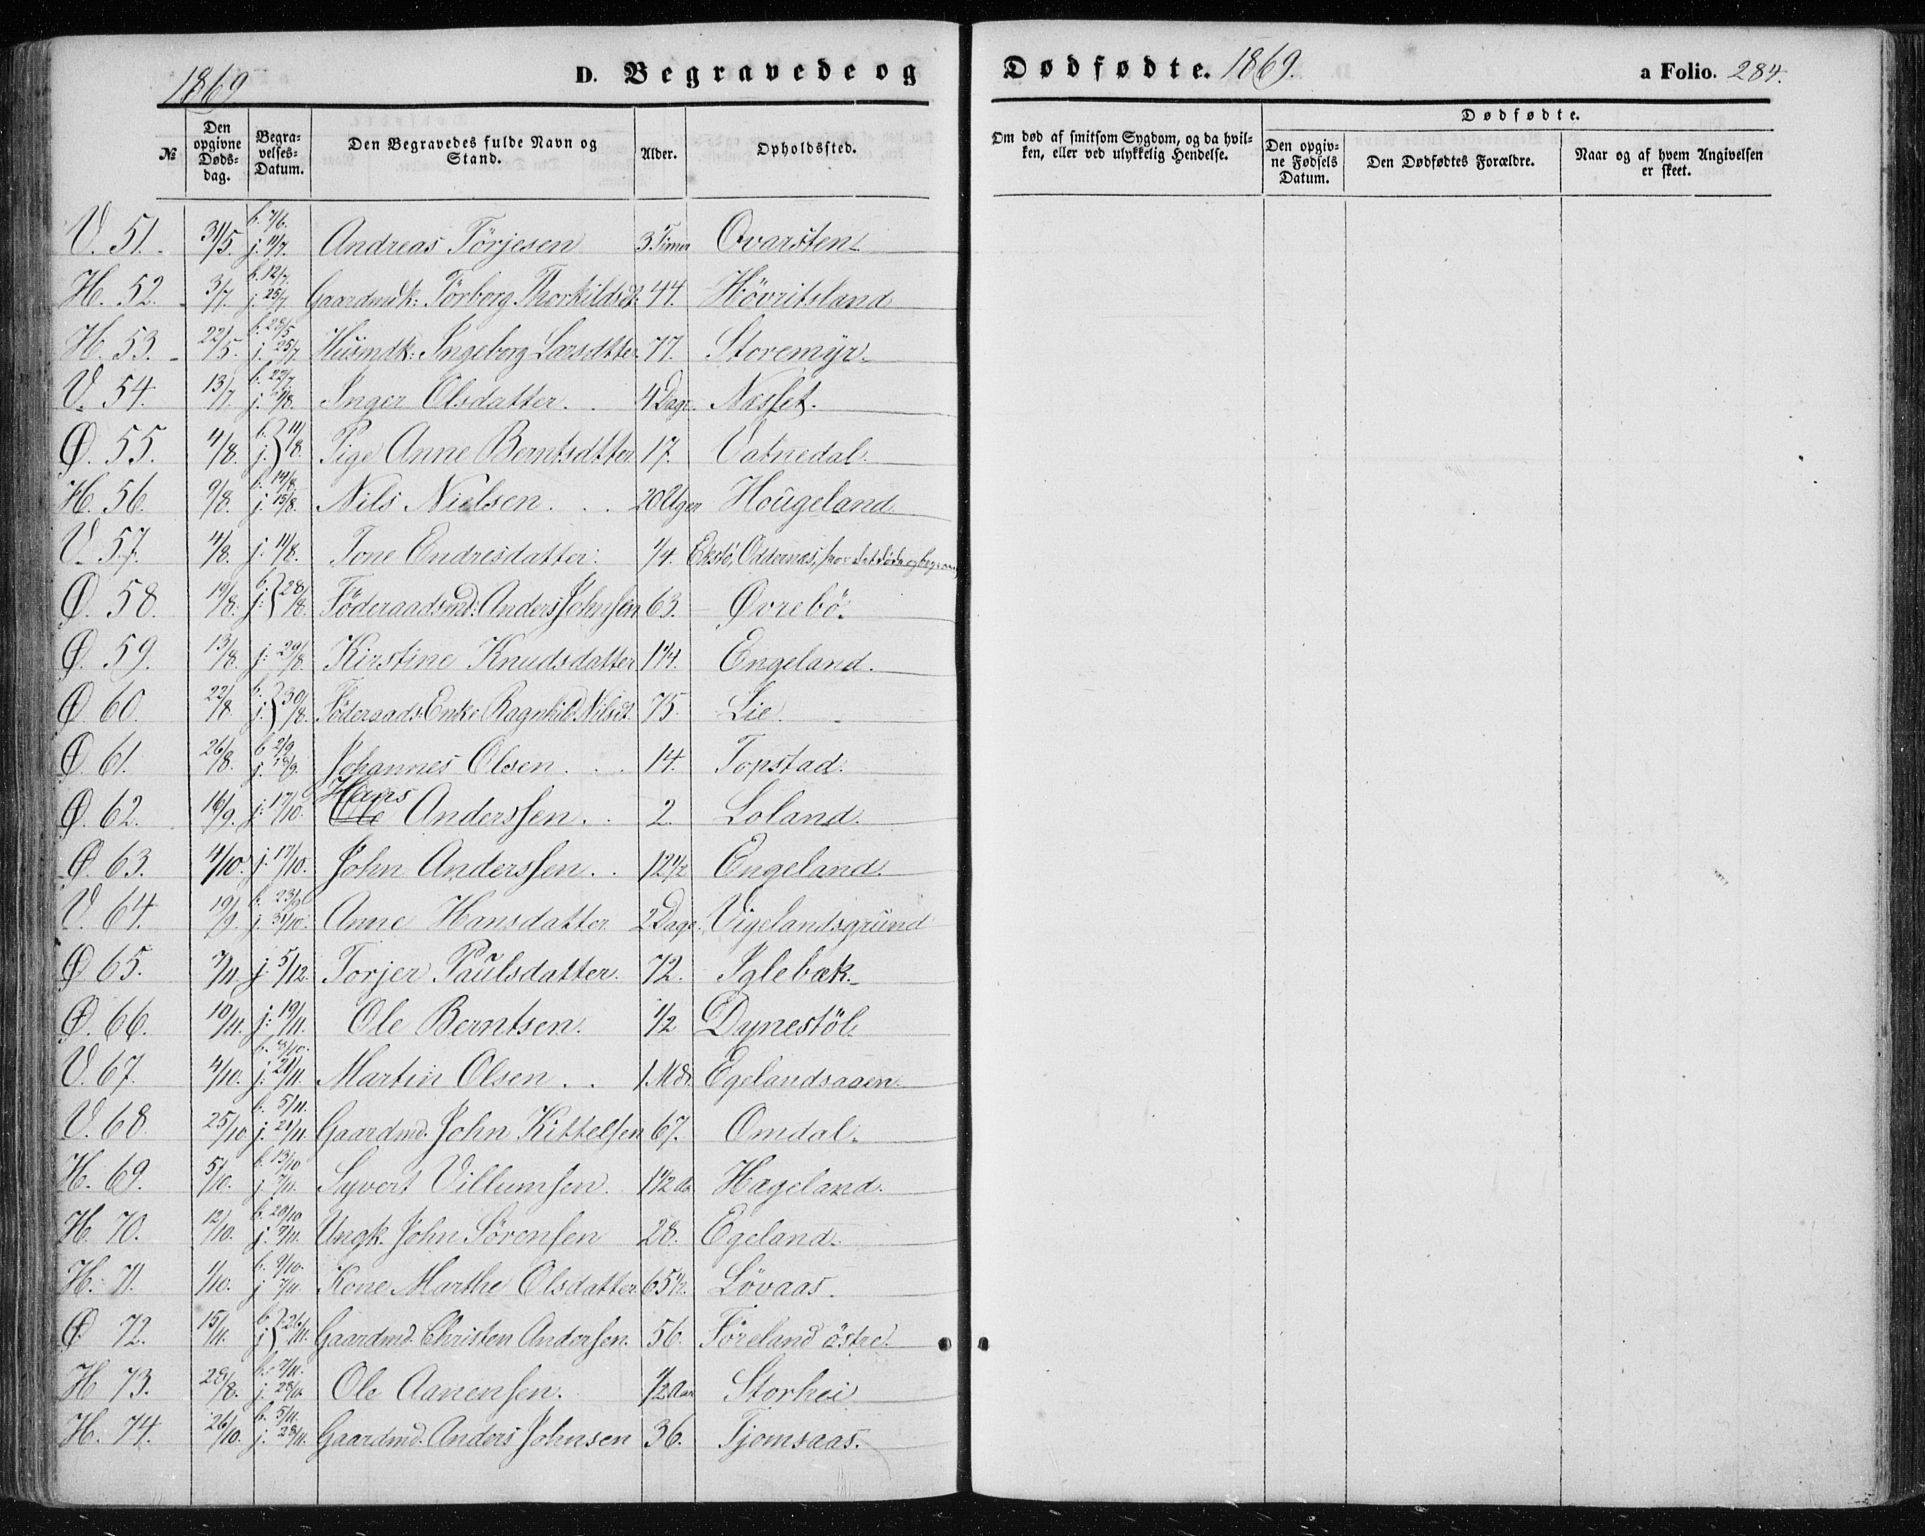 1869 D. Begravede og Dødfødte. 1869. a Folio. 284.
№ Den opgivne Døds-dag. Begra-velses-Datum. Den Begravedes fulde Navn og Stand. Alder. Opholdssted. Om død af smitsom Sygdom, og da hvil-ken, eller ved ulykkelig Hendelse. Dødfødte. Den opgiv-ne Fødsels Datum. Den Dødfødtes Forældre. Naar og af hvem Angivelsen er skeet.
V. 51. 31/5. b. 7/6. j. 11/7. Andreas Törjesen 3 Timer Ovarsten
H. 52. 3/7. b. 12/7. j. 25/7. Gaardmdk: Törborg Thorkildsdt. 44. Hövritsland
H. 53. 22/5. b. 28/5. j. 25/7. Husmdk: Ingeborg Larsdtter. 77. Storemyr
V. 54. 13/7. b. 22/7. j. /8. Inger Olsdatter. 4 Dage. Næset.
Ø. 55. 4/8. b. j. 11/8. Pige Anne Berntsdtter. 17. Vatnedal.
H. 56. 9/8. b. 14/8. j. 15/8. Nils Nielsen. 20 Uger Hougeland
V. 57. 4/8. j. 11/8. Tone Endresdatter. 1/4. Ekstö, Oddernæs, hvor det døde og begraves
Ø. 58. 19/8. b. j: 28/8. Föderaadsmd: Anders Johnsen 63. Øvrebö.
Ø. 59. 13/8. j: 29/8. Kirstine Knudsdatter 1 1/4. Engeland.
Ø. 60. 22/8 b. j. 30/8. Föderaads-Enke Ragnhild Nilsdt. 75. Lie.
Ø. 61. 26/8. b. 2/9. j. 19/9. Johannes Olsen. 14. Topstad.
Ø. 62. 16/9. j: 17/10. Hans Ole Anderssen. 2. Loland.
Ø. 63. 4/10. j: 17/10. John Anderssen. 12 1/2 Engeland.
V. 64. 19/9. b. 23/9. j. 31/10. Anne Hansdatter 2 Dage. Vigelandsgrund
Ø 65. 7/11. j. 5/12. Torjer Paulsdatter. 72. Iglebæk.
Ø. 66. 10/11. j: 19/11. Ole Berntsen. 1/2 Dynestöl
V. 67. 4/10. b. 8/10. j. 21/11. Martin Olsen. 1 Md. Egelandsaaen.
V. 68. 25/10 b. 5/11. j. 21/11. Gaardmd. John Kittelsen 67. Omdal.
H. 69. 5/10. b. 13/10 j. 7/11. Syvert Villumsen. 1 1/2 Aar Hægeland.
H. 70. 12/10. b. 20/10 j. 7/11. Ungk. John Sörensen 28. Egeland.
H. 71. 1/10. b. 9/10. j 7/11. Kone Marthe Olsdatter. 65 1/2. Lövaas.
Ø 72. 15/11. b j 26/11. Gaardmd. Christen Andersen. 56. Föreland östre.
H 73. 28/8. b. 7/11. j. 28/11. Ole Aanensen. 1/2 Aar Storhei
H. 74. 26/10. b. 5/11. j. 28/11. Gaardmd. Anders Johnsen 36. Tjomsaas.